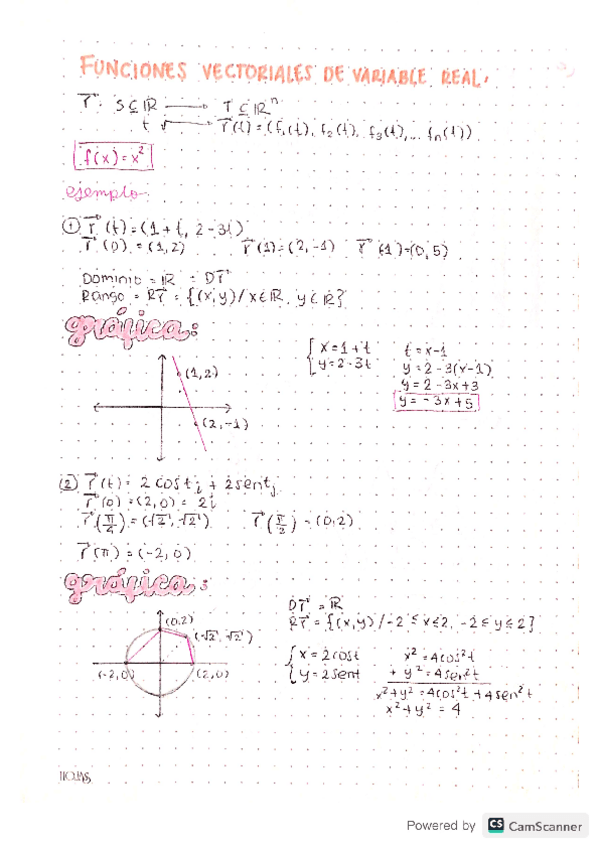 FUNCIONES VECTORIALES DE VARIABLE REAL.
r⃗: S⊆ℝ → T⊆ℝⁿ
t → r⃗(t)=(f₁(t), f₂(t), f₃(t),... fn(t))
f(x)=x²
ejemplo
① r⃗(t)=(1+t, 2-3t)
r⃗(0)=(1,2) r⃗(1)=(2,-1) r⃗(-1)=(0,5)
Dominio = ℝ = Dr⃗
Rango = Rr⃗ = {(x,y)/x∈ℝ, y∈ℝ}
gráfica:
{ x=1+t t=x-1
y=2-3t y=2-3(x-1)
y=2-3x+3
y=-3x+5
(1,2)
(2,-1)
② r⃗(t)= 2costi + 2sentj
r⃗(0)=(2,0)= 2i
r⃗(π/4)=(√2,√2) r⃗(π/2)=(0,2)
r⃗(π)=(-2,0)
gráfica:
Dr⃗ = ℝ
Rr⃗ = {(x,y)/-2≤x≤2, -2≤y≤2}
{ x=2cost x²=4cos²t
y=2sent + y²=4sen²t
x²+y²=4cos²t+4sen²t
x²+y²=4
(0,2)
(-√2,√2)
(-2,0) (2,0)
Powered by CS CamScanner